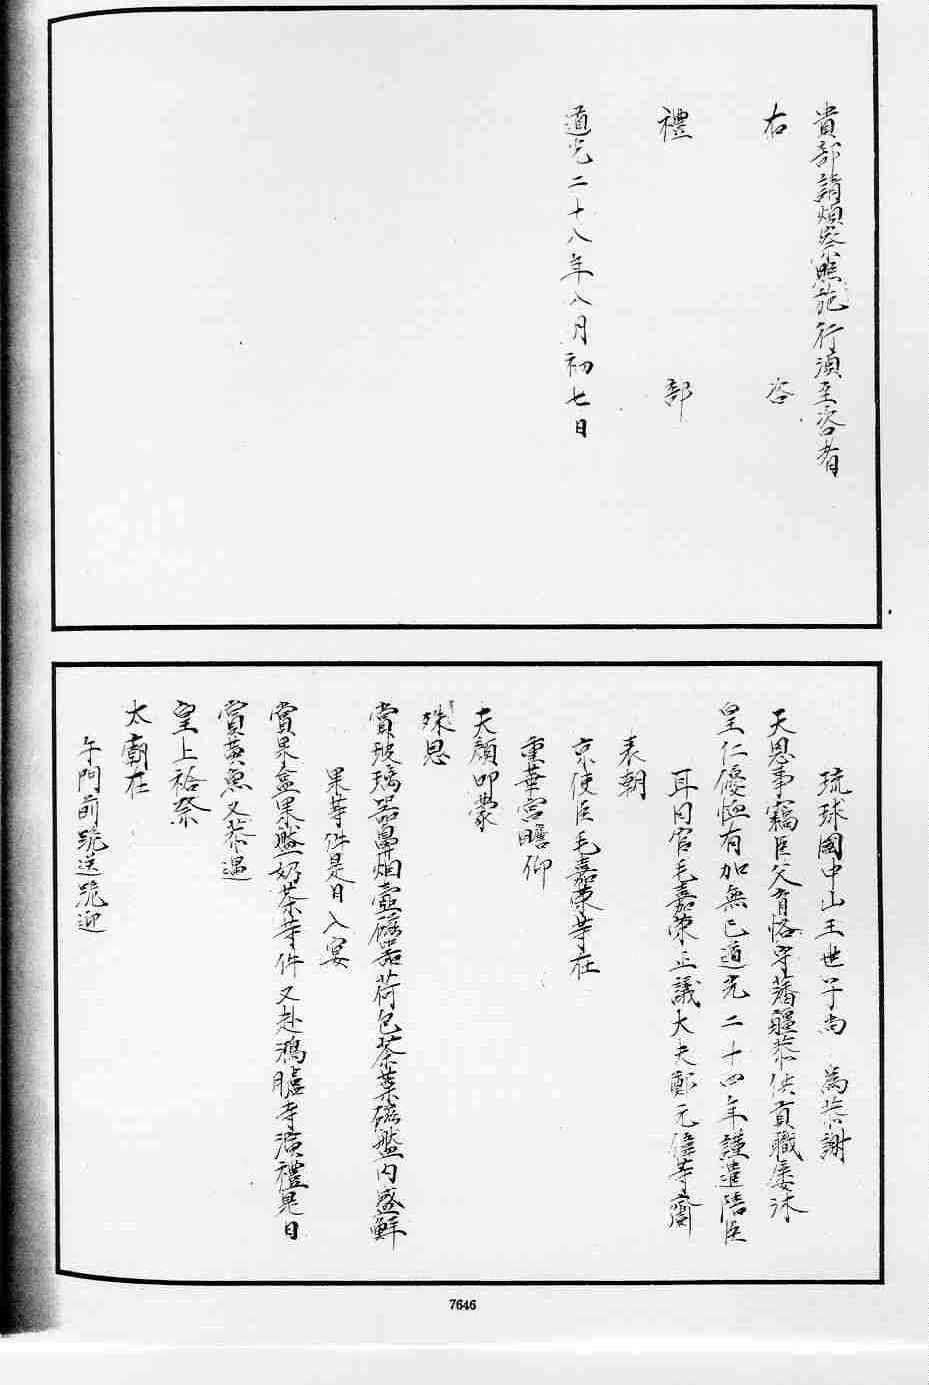 貴部請煩察照施行須至咨者
右 咨
禮 部
道光二十八年八月初七日
琉球國中山王世子尚 為恭謝
天恩事竊臣父育恪守藩疆恭供貢職屡沐
皇仁優恤有加無已道光二十四年謹遣陪臣
耳目官毛嘉榮正議大夫鄭元偉等齎
表朝
京使臣毛嘉榮等在
重華宮瞻仰
天顏叩蒙
殊恩
賞玻璃器鼻烟壺磁器荷包茶葉磁盤內盛鮮
果等件是日入宴
賞果盒果盤奶茶等件又赴鴻臚寺演禮是日
賞黃魚又恭遇
皇上祫祭
太廟在
午門前跪送跪迎
7646